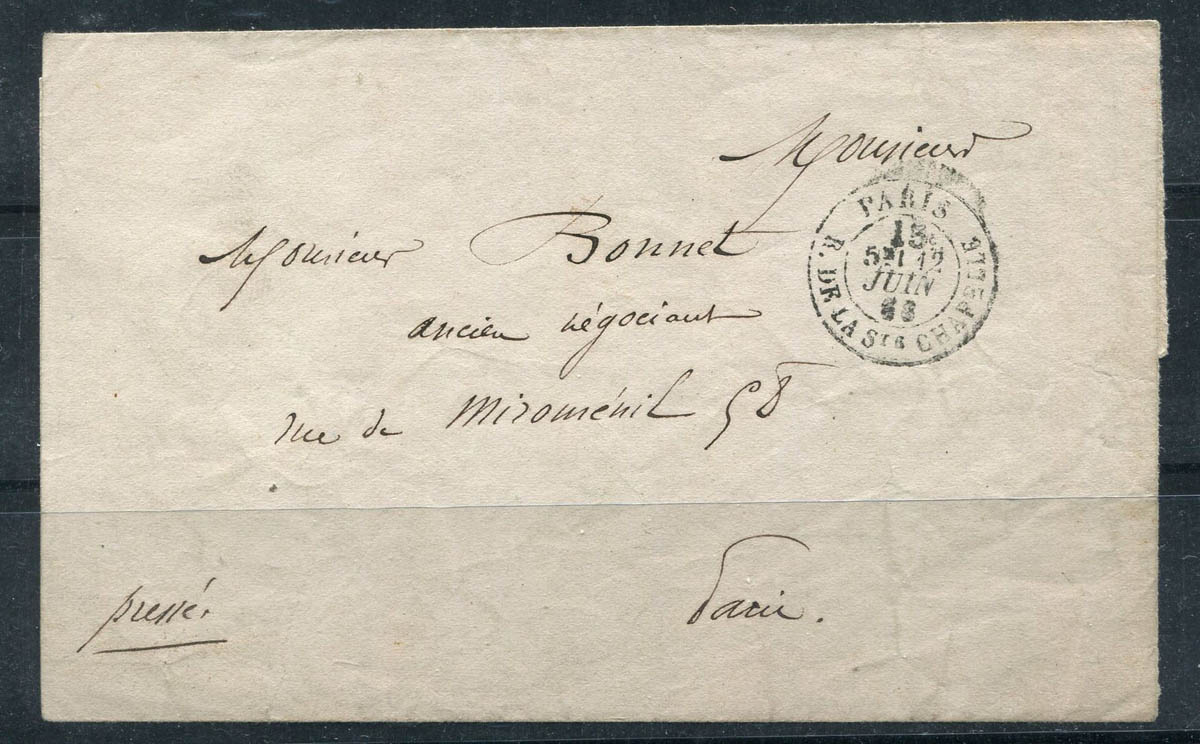 Monsieur
Monsieur Bonnet
ancien négociant
rue de Miroménil 58
Paris.
pressé.
PARIS
R. DE LA Ste CHAPELLE
5E
12
JUIN
68